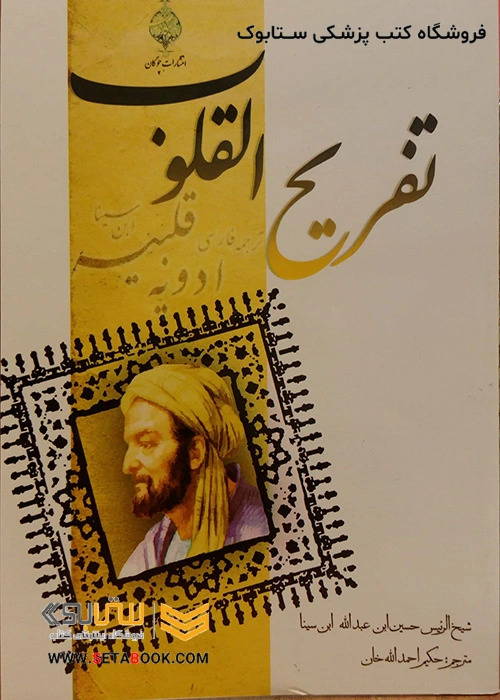 فروشگاه کتب پزشکی ستابوک
انتشارات چوگان
تفریح
القلوب
ترجمه فارسی
ادویه قلبیه
ابن سینا
شیخ الرئیس حسین ابن عبدالله ابن سینا
مترجم: حکیم احمدالله خان
ستابوک
فروشگاه اینترنتی کتاب
WWW.SETABOOK.COM